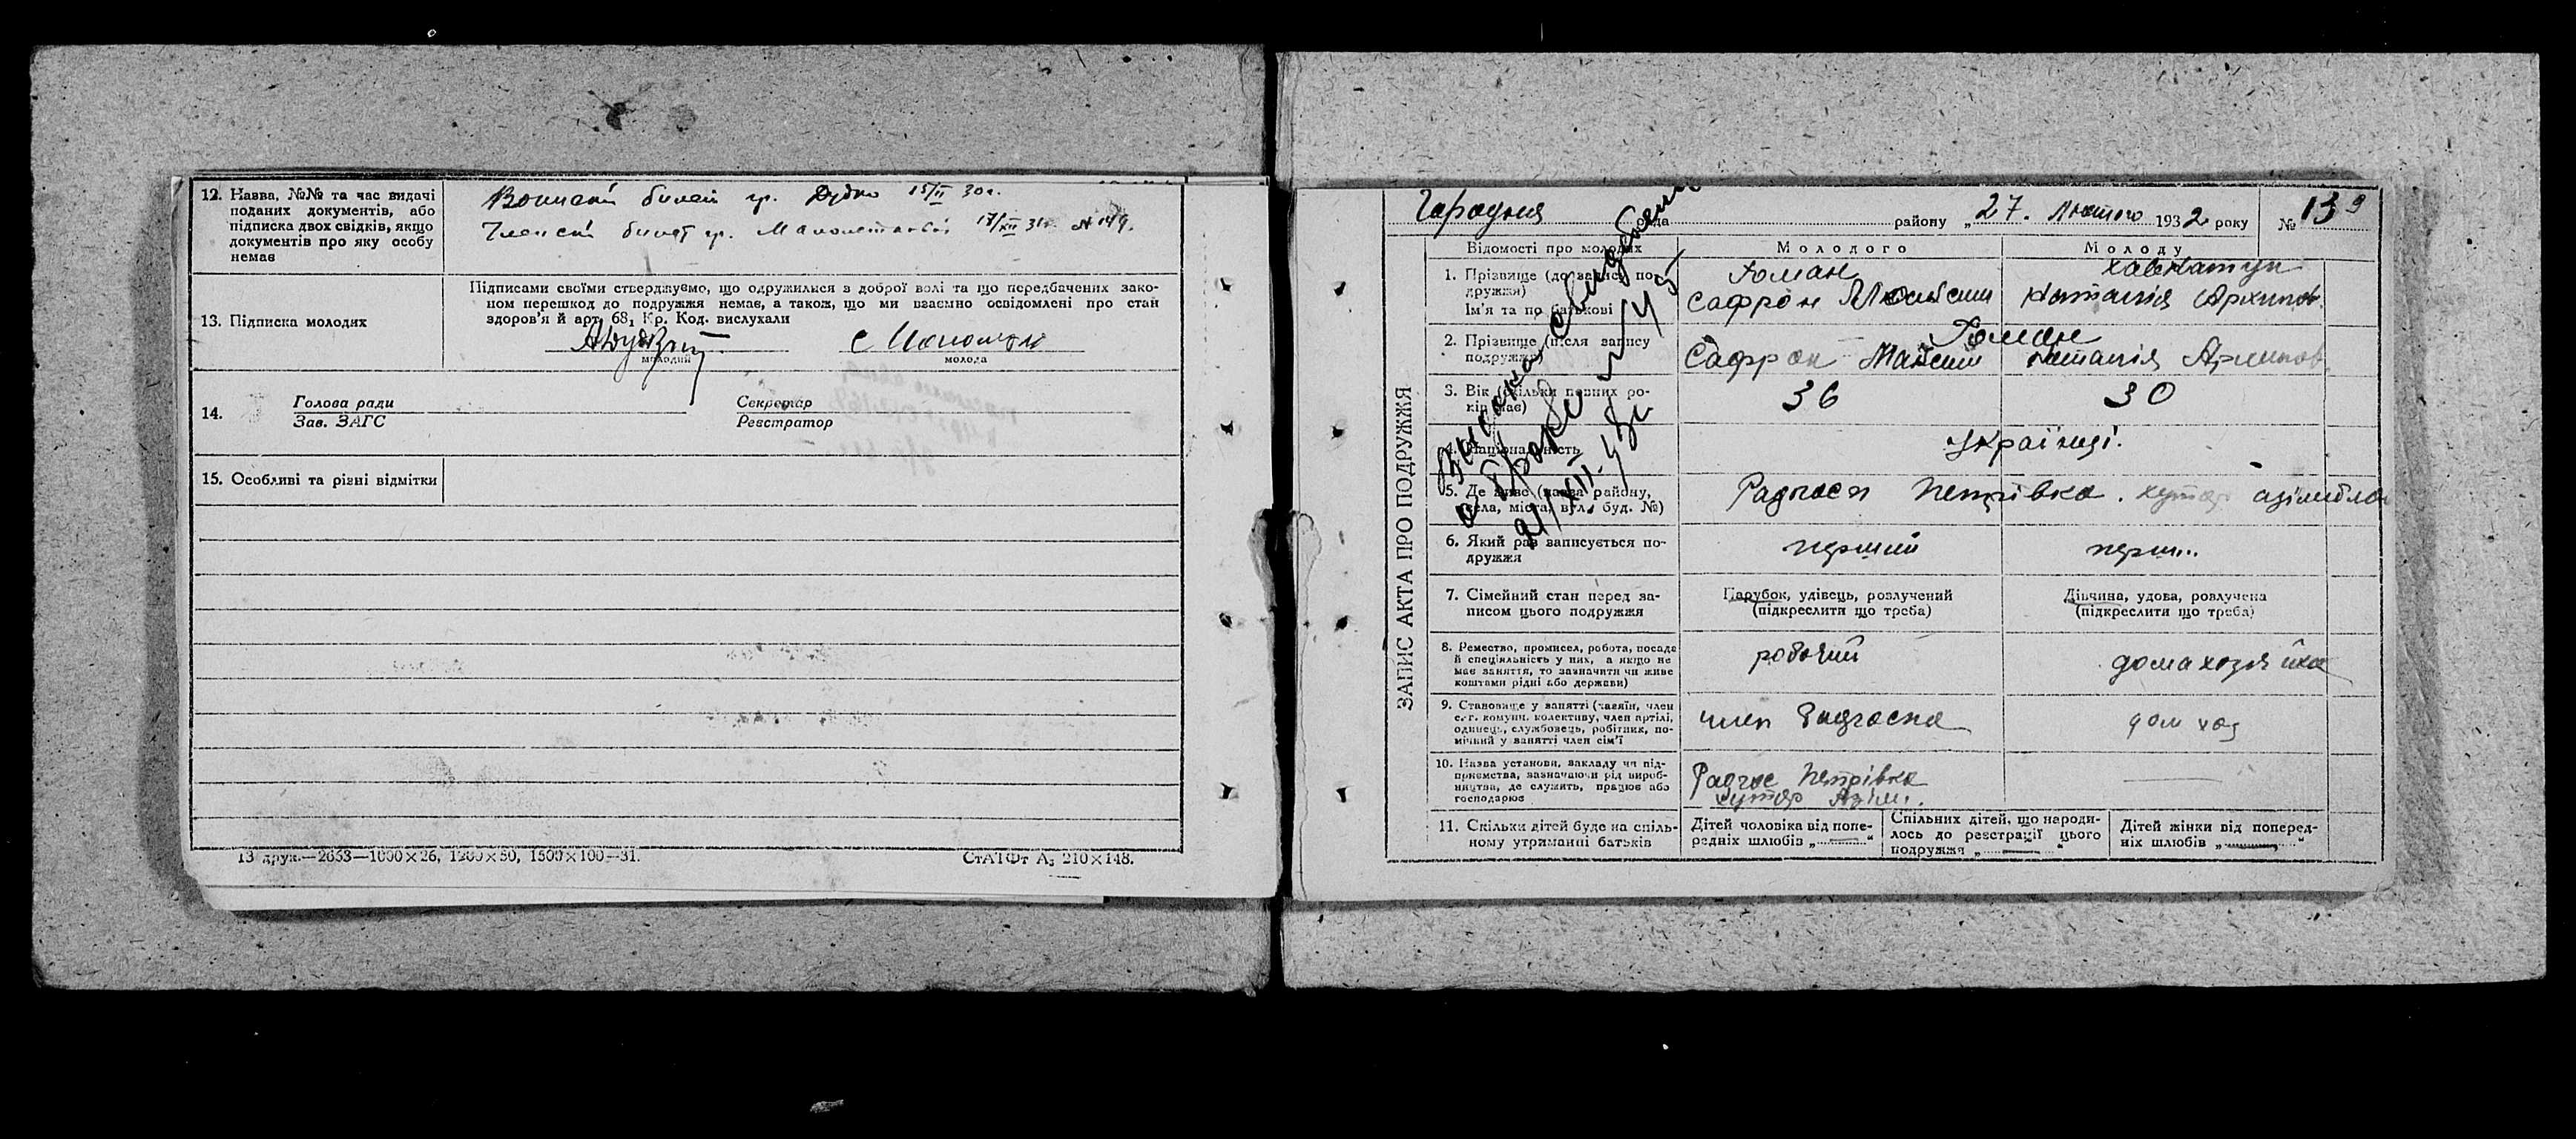 12. Назва, №№ та час видачі
поданих документів, або
підписка двох свідків, якщо
документів про яку особу
немає
билет гр. Дубко 15/II 30 г.
билет гр. 17/XII 31 г. № 149.
13. Підписка молодих
Підписами своїми стверджуємо, що одружилися з доброї волі та що передбачених зако-
ном перешкод до подружжя немає, а також, що ми взаємно освідомлені про стан
здоров'я й арт. 68, Кр. Код. вислухали
молодий
молода
14.
Голова ради
Зав. ЗАГС
Секретар
Реєстратор
15. Особливі та різні відмітки
13 друк.—2653—1000×26, 1200×50, 1500×100—31.
СтАТФт А5 210×148.
ЗАПИС АКТА ПРО ПОДРУЖЖЯ
Городня рада району „27. Лютого 1932 року № 139
Відомості про молодих
Молодого
Молоду
1. Прізвище (до запису по-
дружжя)
Ім'я та по батькові
Гоман
Сафрон
Наталія Архипов.
2. Прізвище (після запису
подружжя)
Гоман
Сафрон
Наталія Архипов.
3. Вік (скільки повних ро-
ків має)
36
30
4. Національність
Українці.
5. Де живе (назва району,
села, міста, вул., буд. №)
Радгосп Петрівка. хутор
6. Який раз записується по-
дружжя
перший
перш...
7. Сімейний стан перед за-
писом цього подружжя
Парубок, удівець, розлучений
(підкреслити що треба)
Дівчина, удова, розлучена
(підкреслити що треба)
8. Ремество, промисел, робота, посада
й спеціяльність у них, а якщо не
має заняття, то зазначити чи живе
коштами рідні або держави)
робочий
домахозяйка
9. Становище у занятті (хазяїн, член
с.-г. комуни, колективу, член артілі,
одинець, службовець, робітник, по-
мічний у занятті член сім'ї
член Радгоспа
дом хоз
10. Назва установи, закладу чи під-
приємства, зазначаючи рід вироб-
ництва, де служить, працює або
господарює
Радгос Петрівка
хутор
11. Скільки дітей буде на спіль-
ному утриманні батьків
Дітей чоловіка від попе-
редніх шлюбів „ — “
Спільних дітей, що народи-
лось до реєстрації цього
подружжя „ — “
Дітей жінки від поперед-
ніх шлюбів „ — “
Выдано свидетельство
о браке
21/XII-48г.